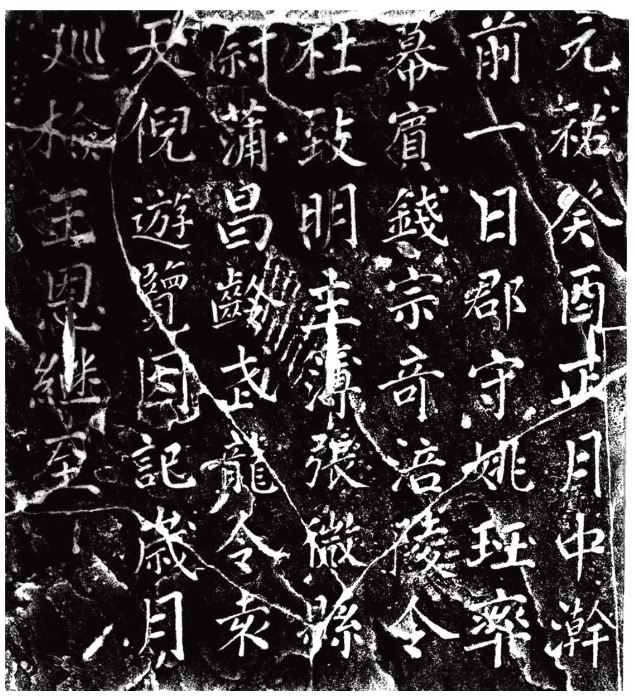 元祐癸酉正月中澣
前一日郡守姚珏率
幕賓錢宗竒涪陵令
杜致明主簿張微縣
尉蒲昌齡武龍令袁
天倪遊覽因記歲月
廵檢王恩継至